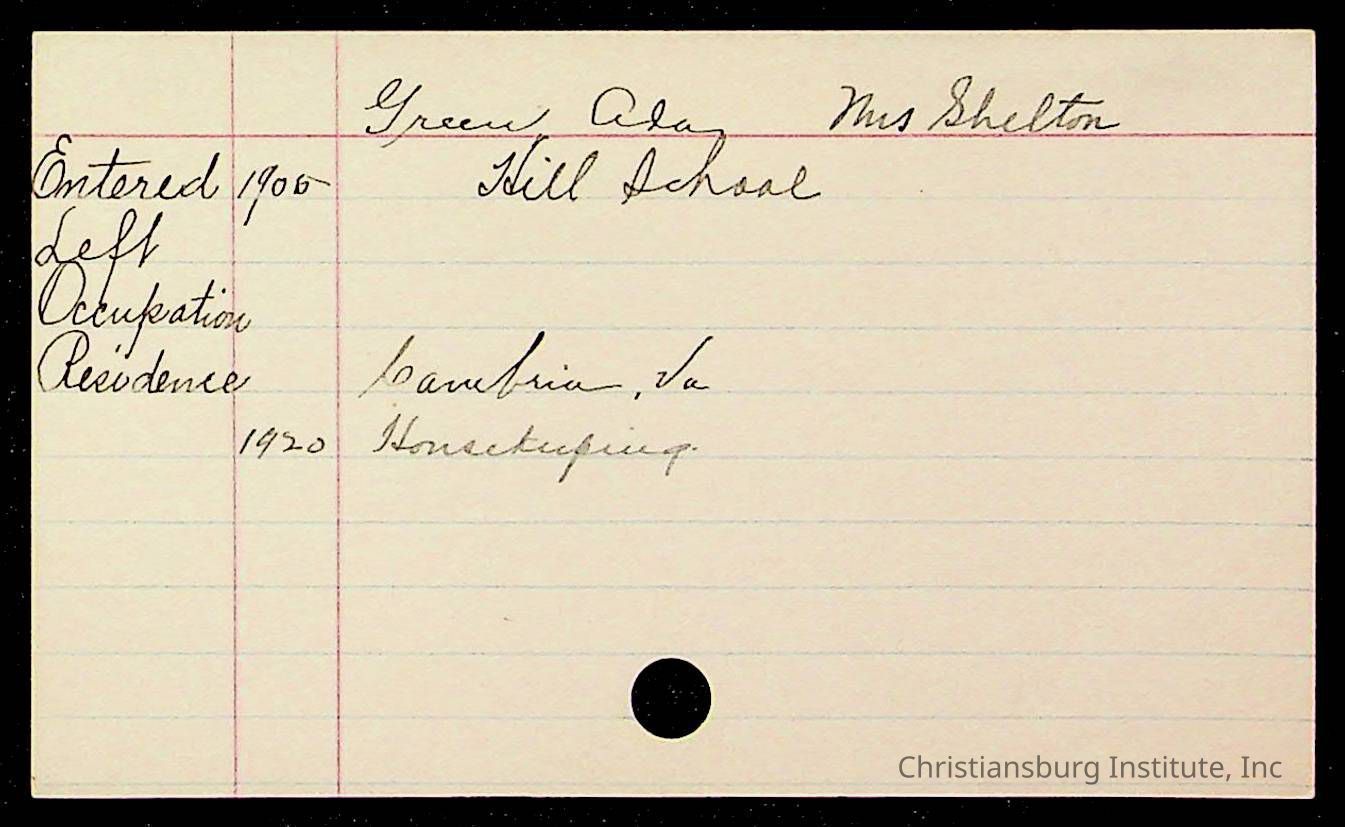 Green, Ada Mrs Shelton
Entered 1905 Hill School
Left
Occupation
Residence Cambria, Va
1920 Housekeeping.
Christiansburg Institute, Inc